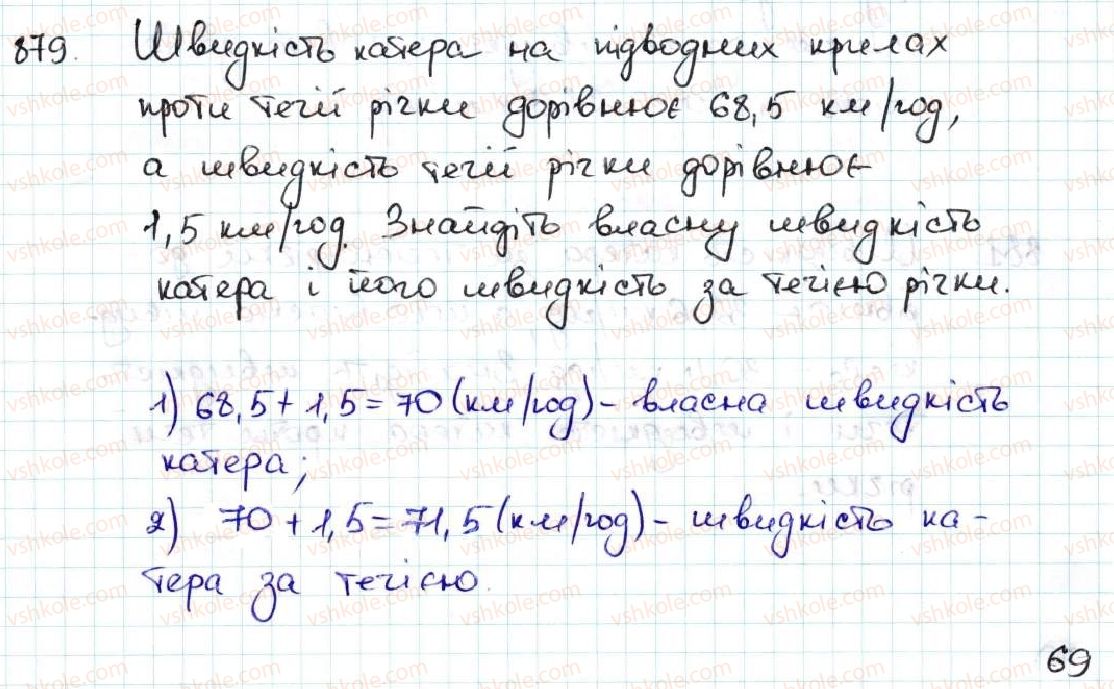 879. Швидкість катера на підводних крилах
проти течії річки дорівнює 68,5 км/год,
а швидкість течії річки дорівнює
1,5 км/год. Знайдіть власну швидкість
катера і його швидкість за течією річки.
1) 68,5 + 1,5 = 70 (км/год) - власна швидкість
катера;
2) 70 + 1,5 = 71,5 (км/год) - швидкість ка-
тера за течією.
69
vshkole.com